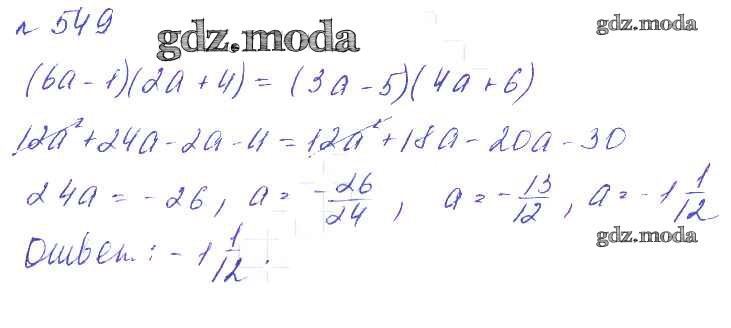 № 549
gdz.moda
gdz.moda
(6a - 1)(2a + 4) = (3a - 5)(4a + 6)
12a² + 24a - 2a - 4 = 12a² + 18a - 20a - 30
24a = -26, a = -26/24, a = -13/12, a = -1 1/12
gdz.moda
Ответ: -1 1/12.